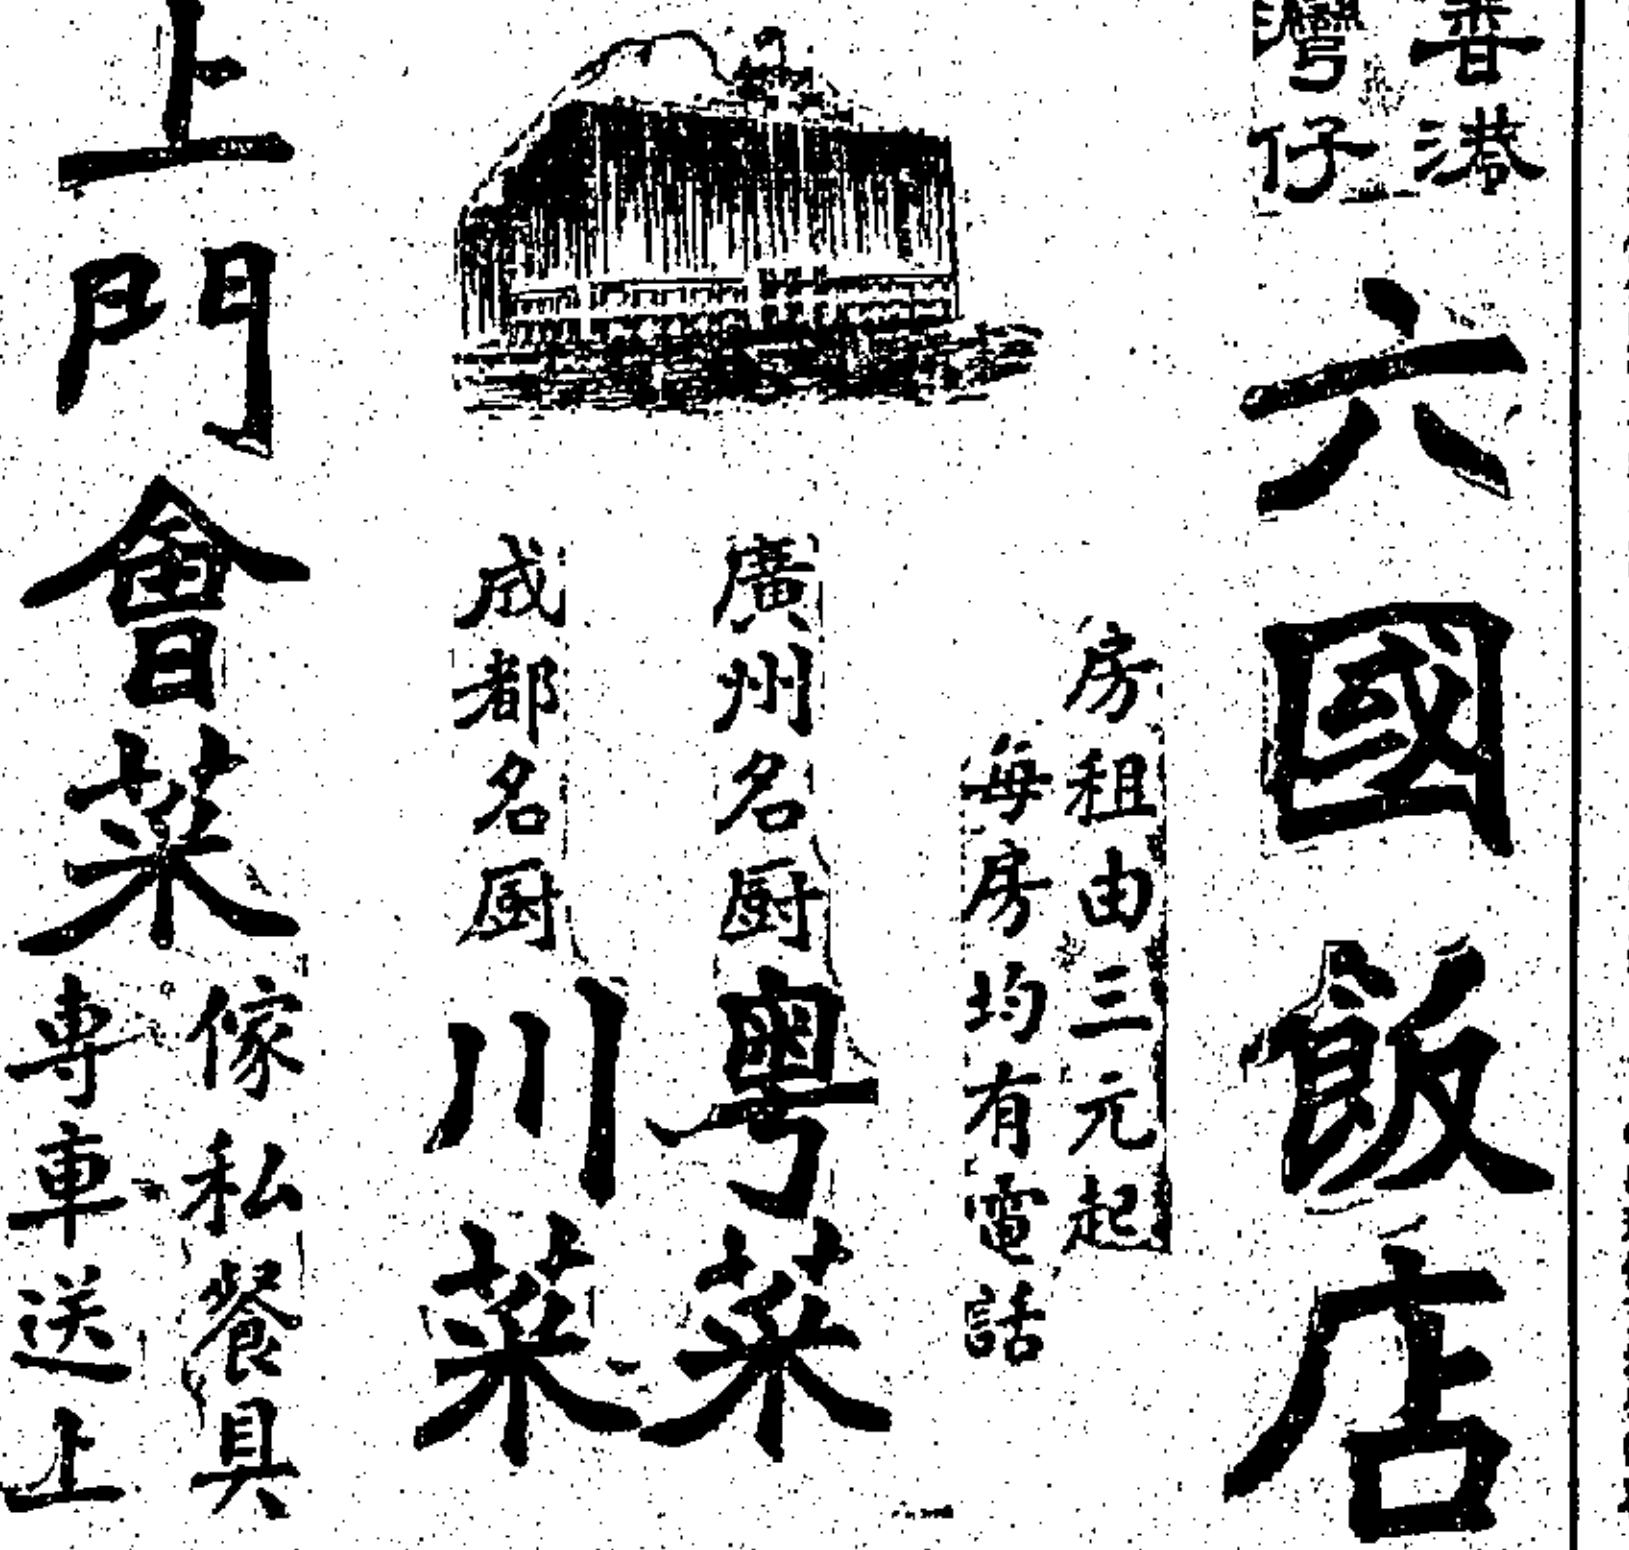 香港
灣仔
六國飯店
房租由三元起
每房均有電話
廣州名厨粵菜
成都名厨川菜
上門會菜
傢私餐具
專車送上